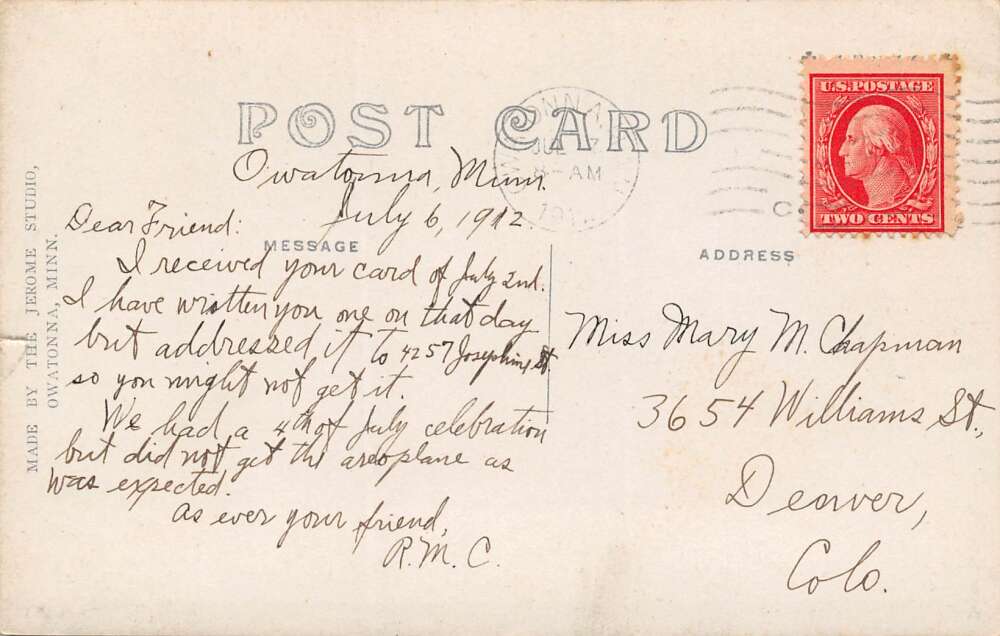 POST CARD
Owatonna, Minn.
July 6, 1912.
Dear Friend:
MESSAGE
I received your card of July 2nd.
I have written you one on that day
but addressed it to 4257 Josephine St.
so you might not get it.
We had a 4th of July celebration
but did not get the areoplane as
was expected.
As ever your friend,
R. M. C.
MADE BY THE JEROME STUDIO,
OWATONNA, MINN.
JUL 7
AM
U.S. POSTAGE
TWO CENTS
ADDRESS
Miss Mary M. Chapman
3654 Williams St.,
Denver,
Colo.